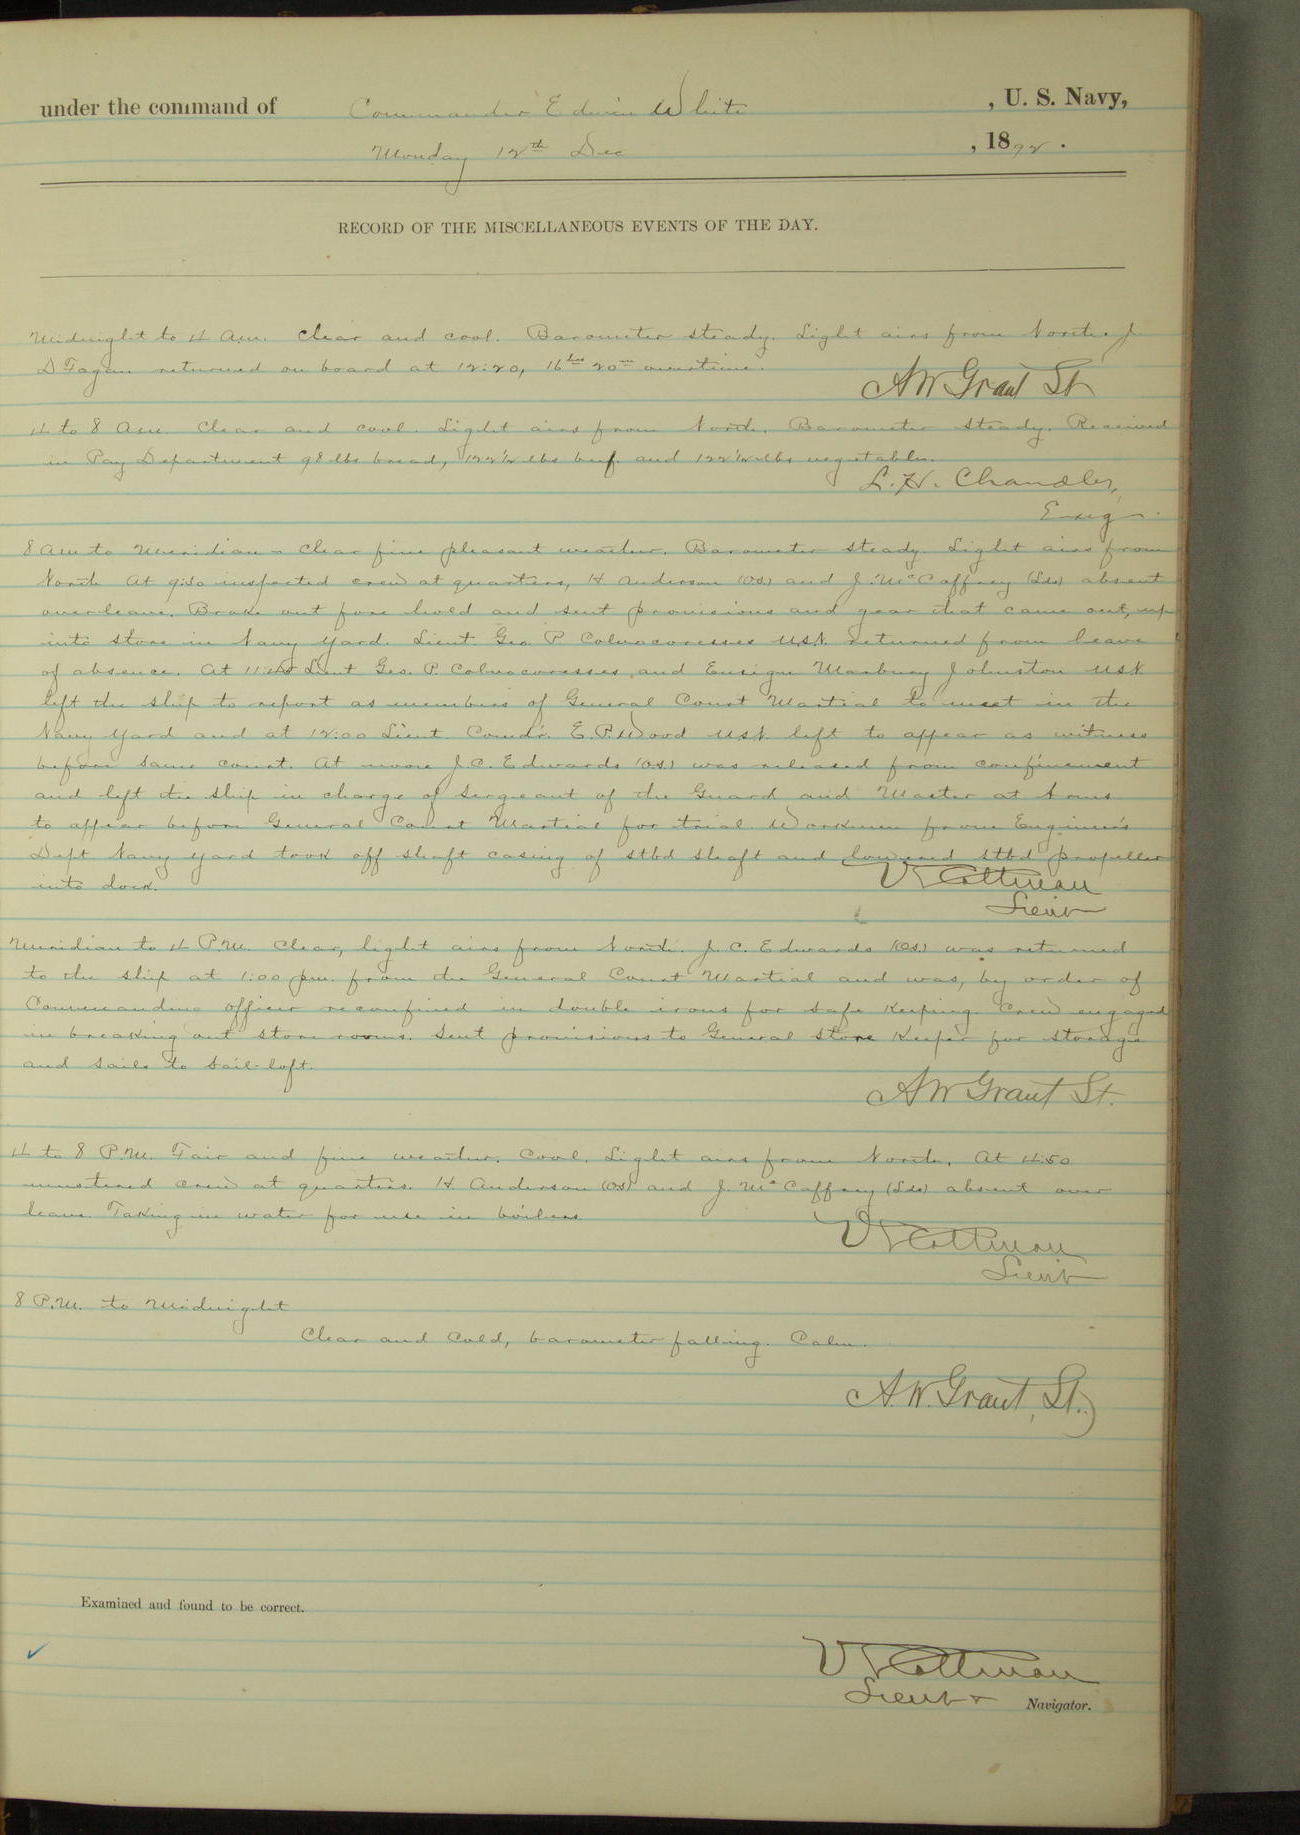 under the command of Commander Edwin White , U. S. Navy,
Monday 12th Dec , 1892 .
RECORD OF THE MISCELLANEOUS EVENTS OF THE DAY.
Midnight to 4 A.m. Clear and cool. Barometer steady. Light airs from North. J.
D Fagan returned on board at 12:20, 16 hrs 20 m overtime.
A W Grant Lt
4 to 8 A.m. Clear and cool. Light airs from North. Barometer steady. Received
in Pay Department 98 lbs bread, 122½ lbs beef and 122½ lbs vegetables.
L. H. Chandler,
Ensign.
8 Am to Meridian - Clear fine pleasant weather. Barometer steady. Light airs from
North At 9:30 inspected crew at quarters, H Anderson (O.S.) and J. McCaffrey (Lds) absent
over leave. Broke out fore hold and sent provisions and gear that came out, up
into store in Navy Yard. Lieut Geo P Colvocoresses U.S.N. returned from leave
of absence. At Lieut Geo. P. Colvocoresses, and Ensign Marbury Johnston U.S.N.
left the ship to report as members of General Court Martial to meet in the
Navy Yard and at 12:00 Lieut Comdr. E. P. Wood U.S.N. left to appear as witness
before same court. At noon J. C. Edwards (O.S.) was released from confinement
and left the ship in charge of Sergeant of the Guard and Master at Arms
to appear before General Court Martial for trial. Workmen from Engineer's
Dept Navy Yard took off shaft casing of stbd shaft and lowered stbd propeller
into dock.
V Cottman
Lieut
Meridian to 4 P.M. Clear, light airs from North. J. C. Edwards (O.S.) was returned
to the ship at 1:00 p.m. from the General Court Martial and was, by order of
Commanding officer reconfined in double irons for safe keeping. Crew engaged
in breaking out store rooms. Sent provisions to General Store Keeper for storage
and sails to sail-loft.
A W Grant Lt.
4 to 8 P.M. Fair and fine weather. Cool. Light airs from North. At 4:50
mustered crew at quarters. H. Anderson (OS) and J. McCaffrey (Lds) absent over
leave. Taking in water for use in boilers.
V Cottman
Lieut
8 P.M. to Midnight
Clear and Cold, barometer falling. Calm.
A. W. Grant, Lt.
Examined and found to be correct.
V Cottman
Lieut Navigator.